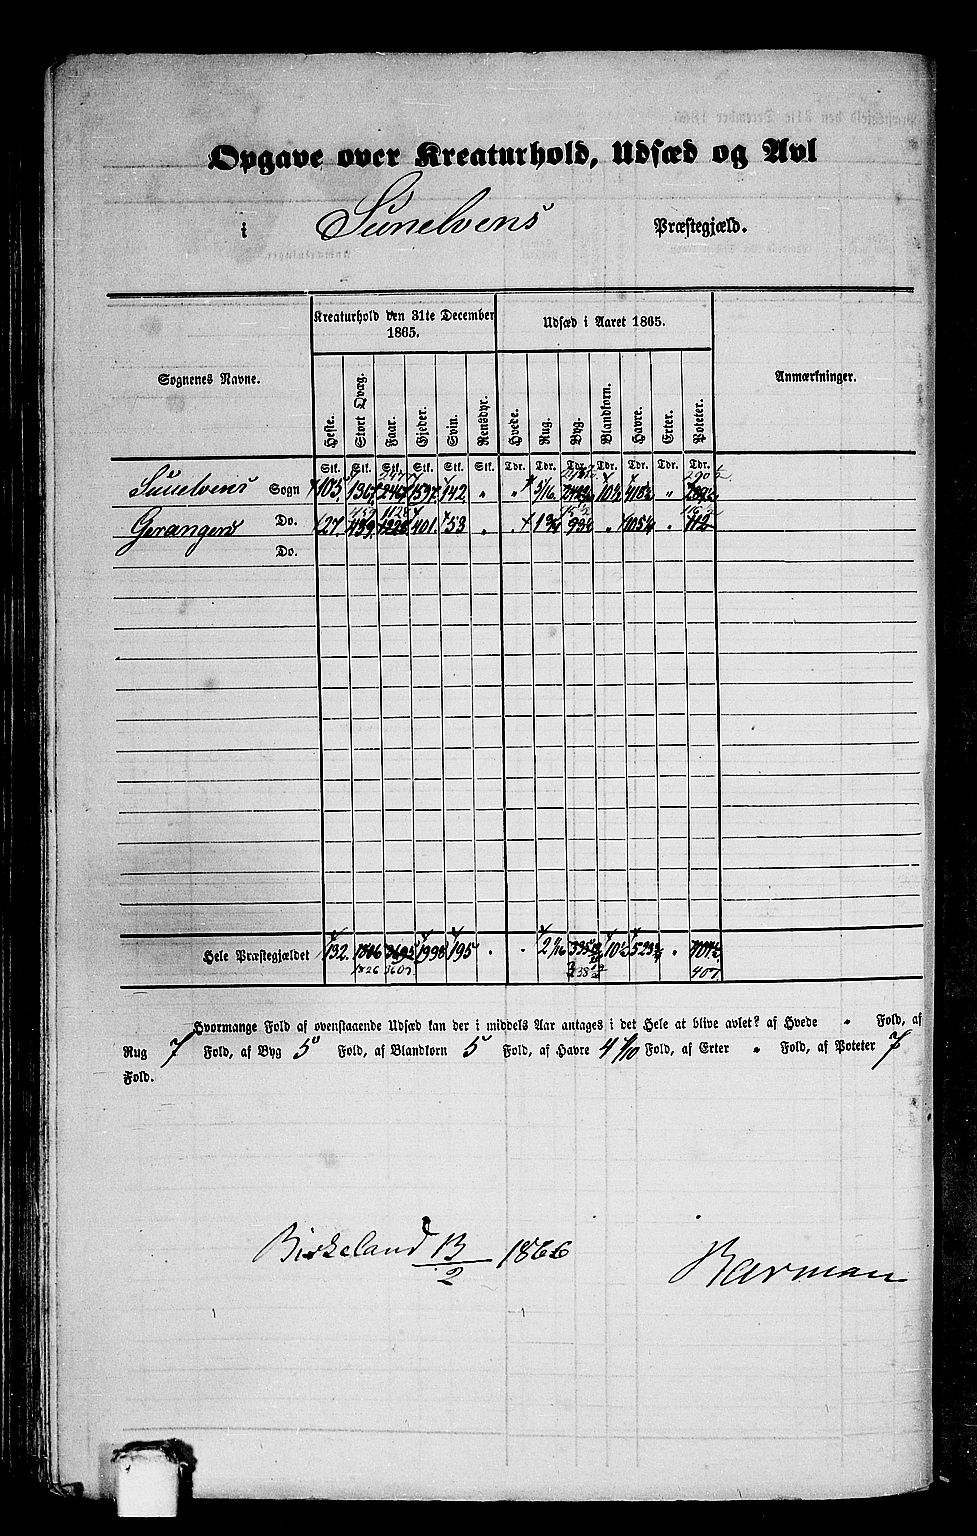 Opgave over Kreaturhold, Udsæd og Avl
i Sunelvens Præstegjæld.
Sognenes Navne. Kreaturhold den 31te December 1865. Udsæd i Aaret 1865. Anmærkninger.
Heste. Stort Qvæg. Faar. Gjeder. Svin. Rensdyr. Hvede. Rug. Byg. Blandkorn. Havre. Erter. Poteter.
Stk. Stk. Stk. Stk. Stk. Stk. Tdr. Tdr. Tdr. Tdr. Tdr. Tdr. Tdr.
Sunelvens Sogn 105 1367 1597 142 " " 5/16 10½ "
Gerangers Do. 27. 459 439. 1128 401. 53 " " " 112
Do.
Hele Præstegjældet 132. 1806 3695 1998 195 " " 2 1/16 10½ 523¾ "
1826 3607 407
Hvormange Fold af ovenstaaende Udsæd kan der i middels Aar antages i det Hele at blive avlet? af Hvede " Fold, af
Rug 7 Fold, af Byg 5 Fold, af Blandkorn 5 Fold, af Havre 4 1/10 Fold, af Erter " Fold, af Poteter 7
Fold.
Birkeland 13/2 1866
Harman